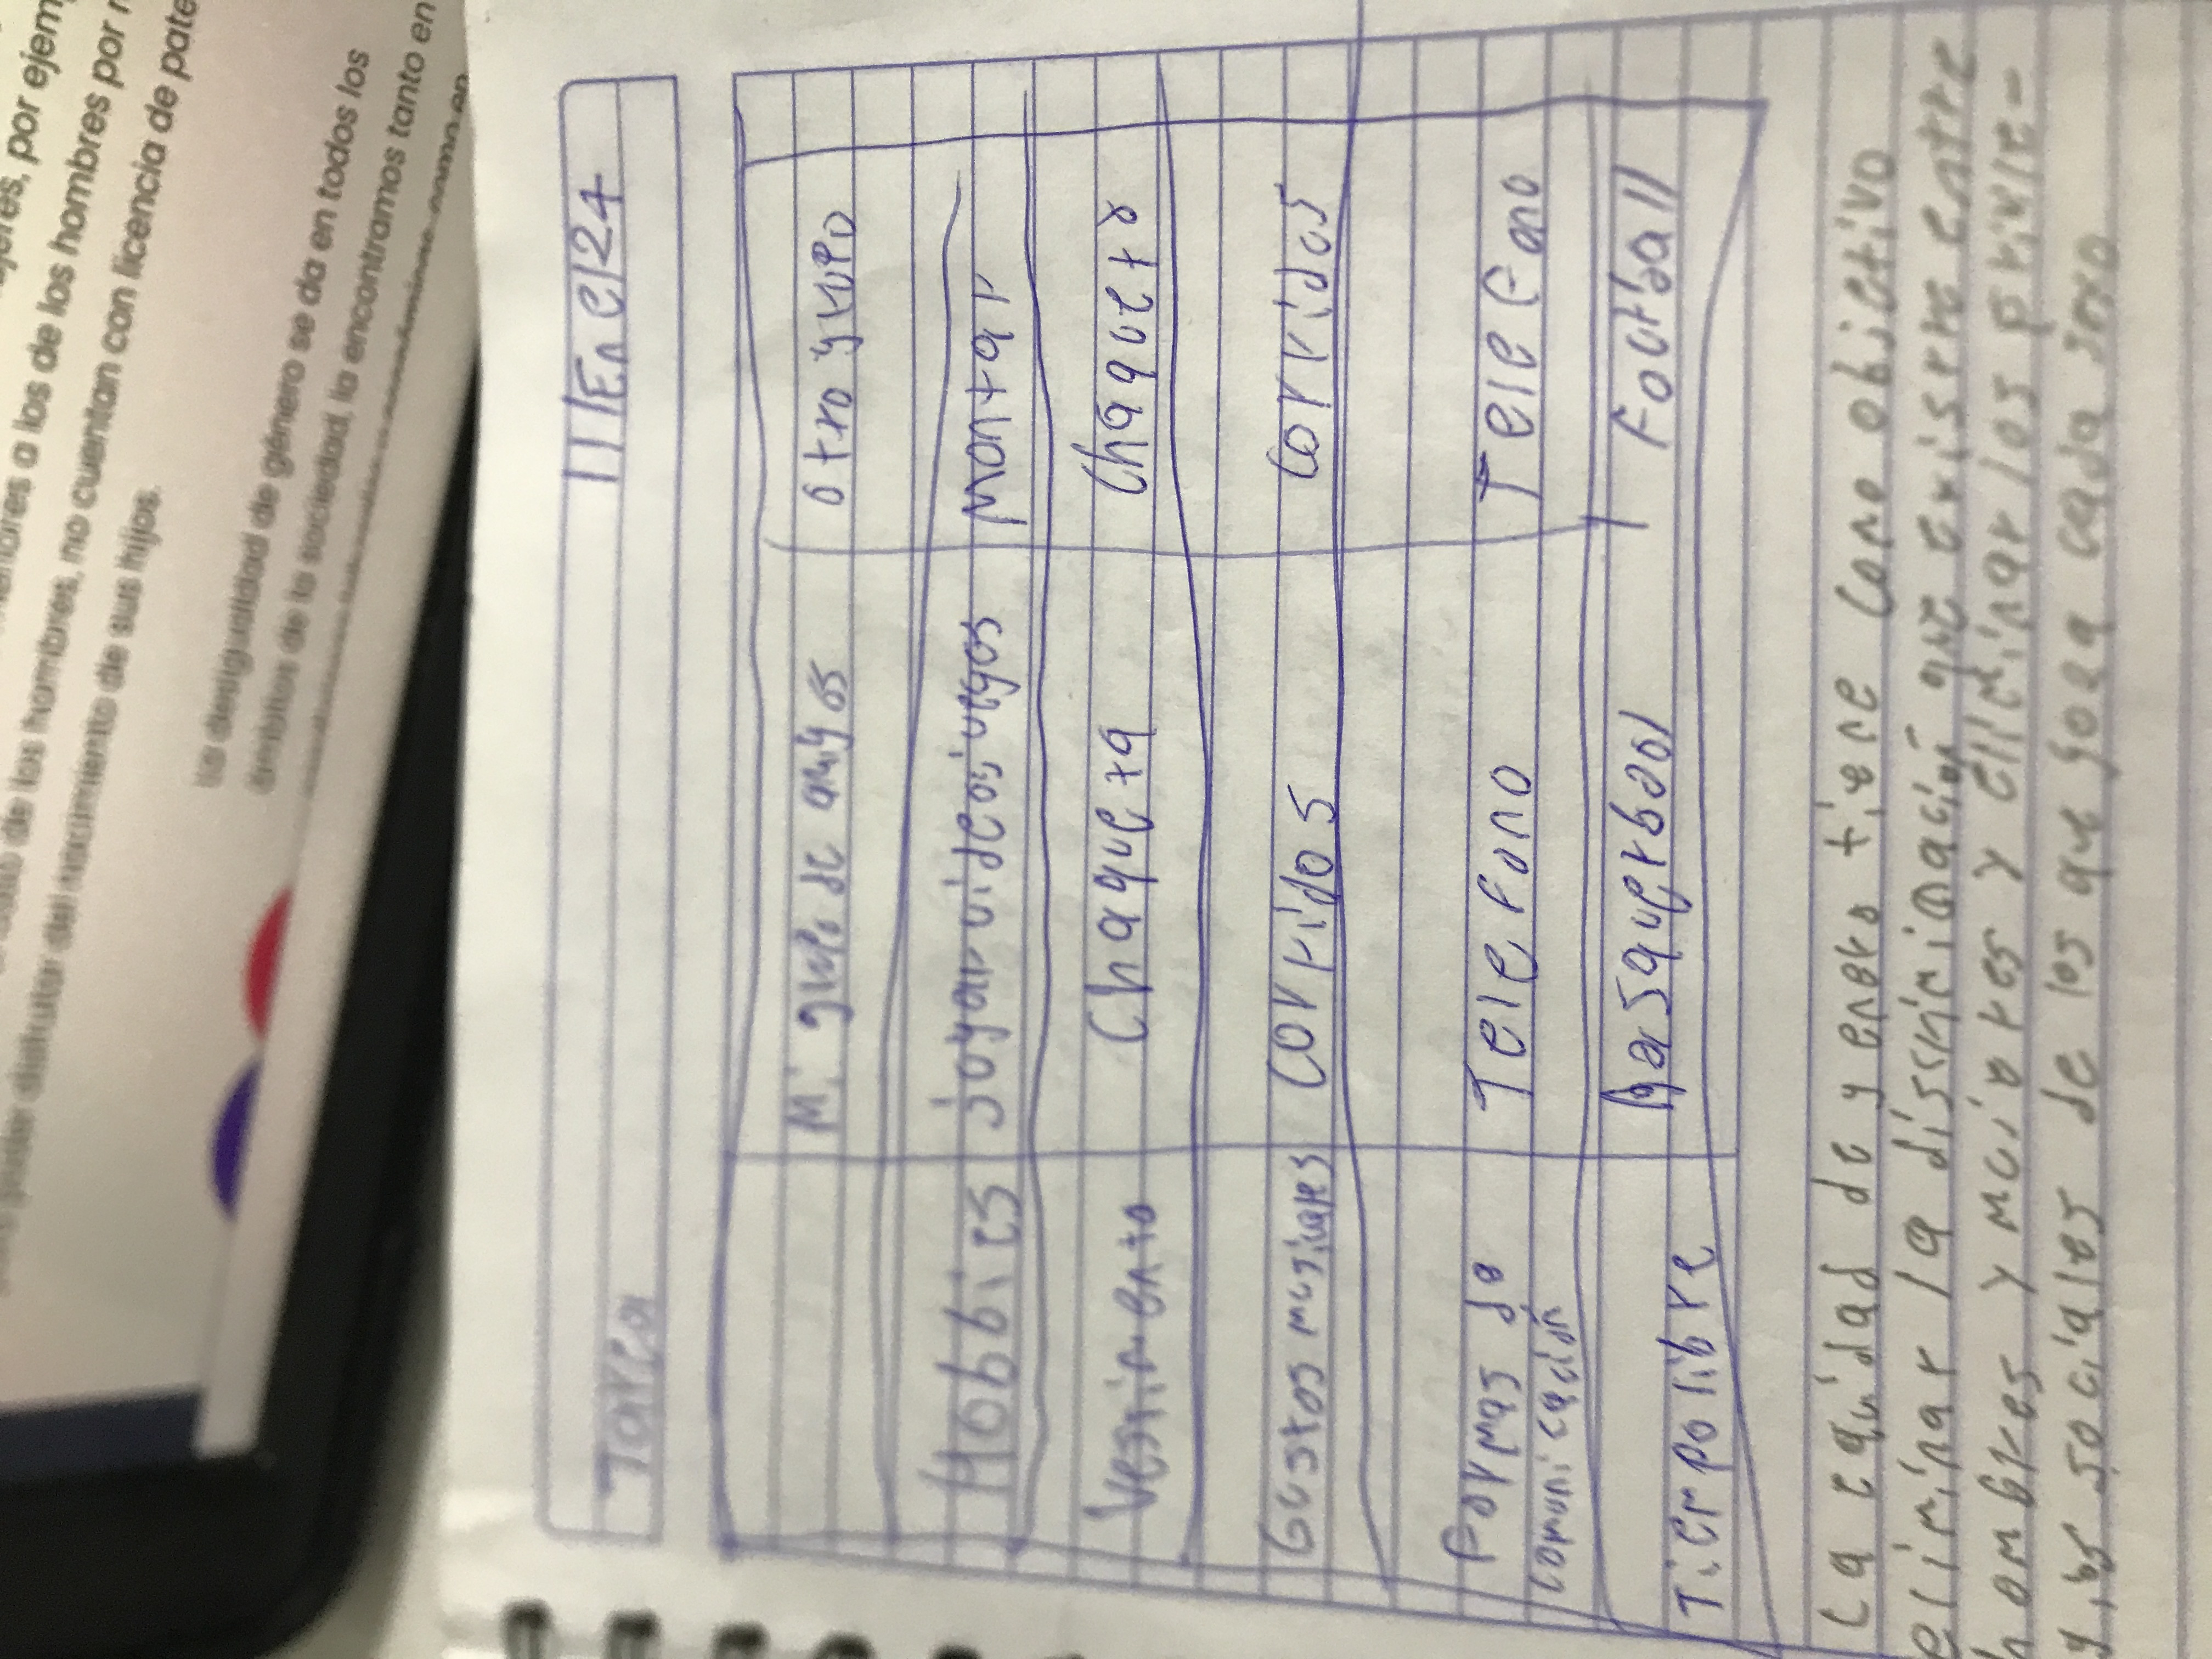 ujeres, por ejem
a los de los hombres por
de los hombres, no cuentan con licencia de pate
poder disfrutar del nacimiento de sus hijos.
La desigualdad de género se da en todos los
ámbitos de la sociedad, la encontramos tanto en
Tarea 11/Ene/24
Mi grupo de amigos otro grupo
Hobbies joyar videosjuegos Montar
Vestimento Chaqueta Chaqueta
Gustos musicares Corridos Corridos
Formas de Telefono Telefono
comunicación
Tiempo libre Basquerbool Football
La equidad de yenero tiene Como objetivo
eliminar la discriminación que existre entre
hombres y mujeres y eliminar los privile-
gios sociales de los que goza cada sexo